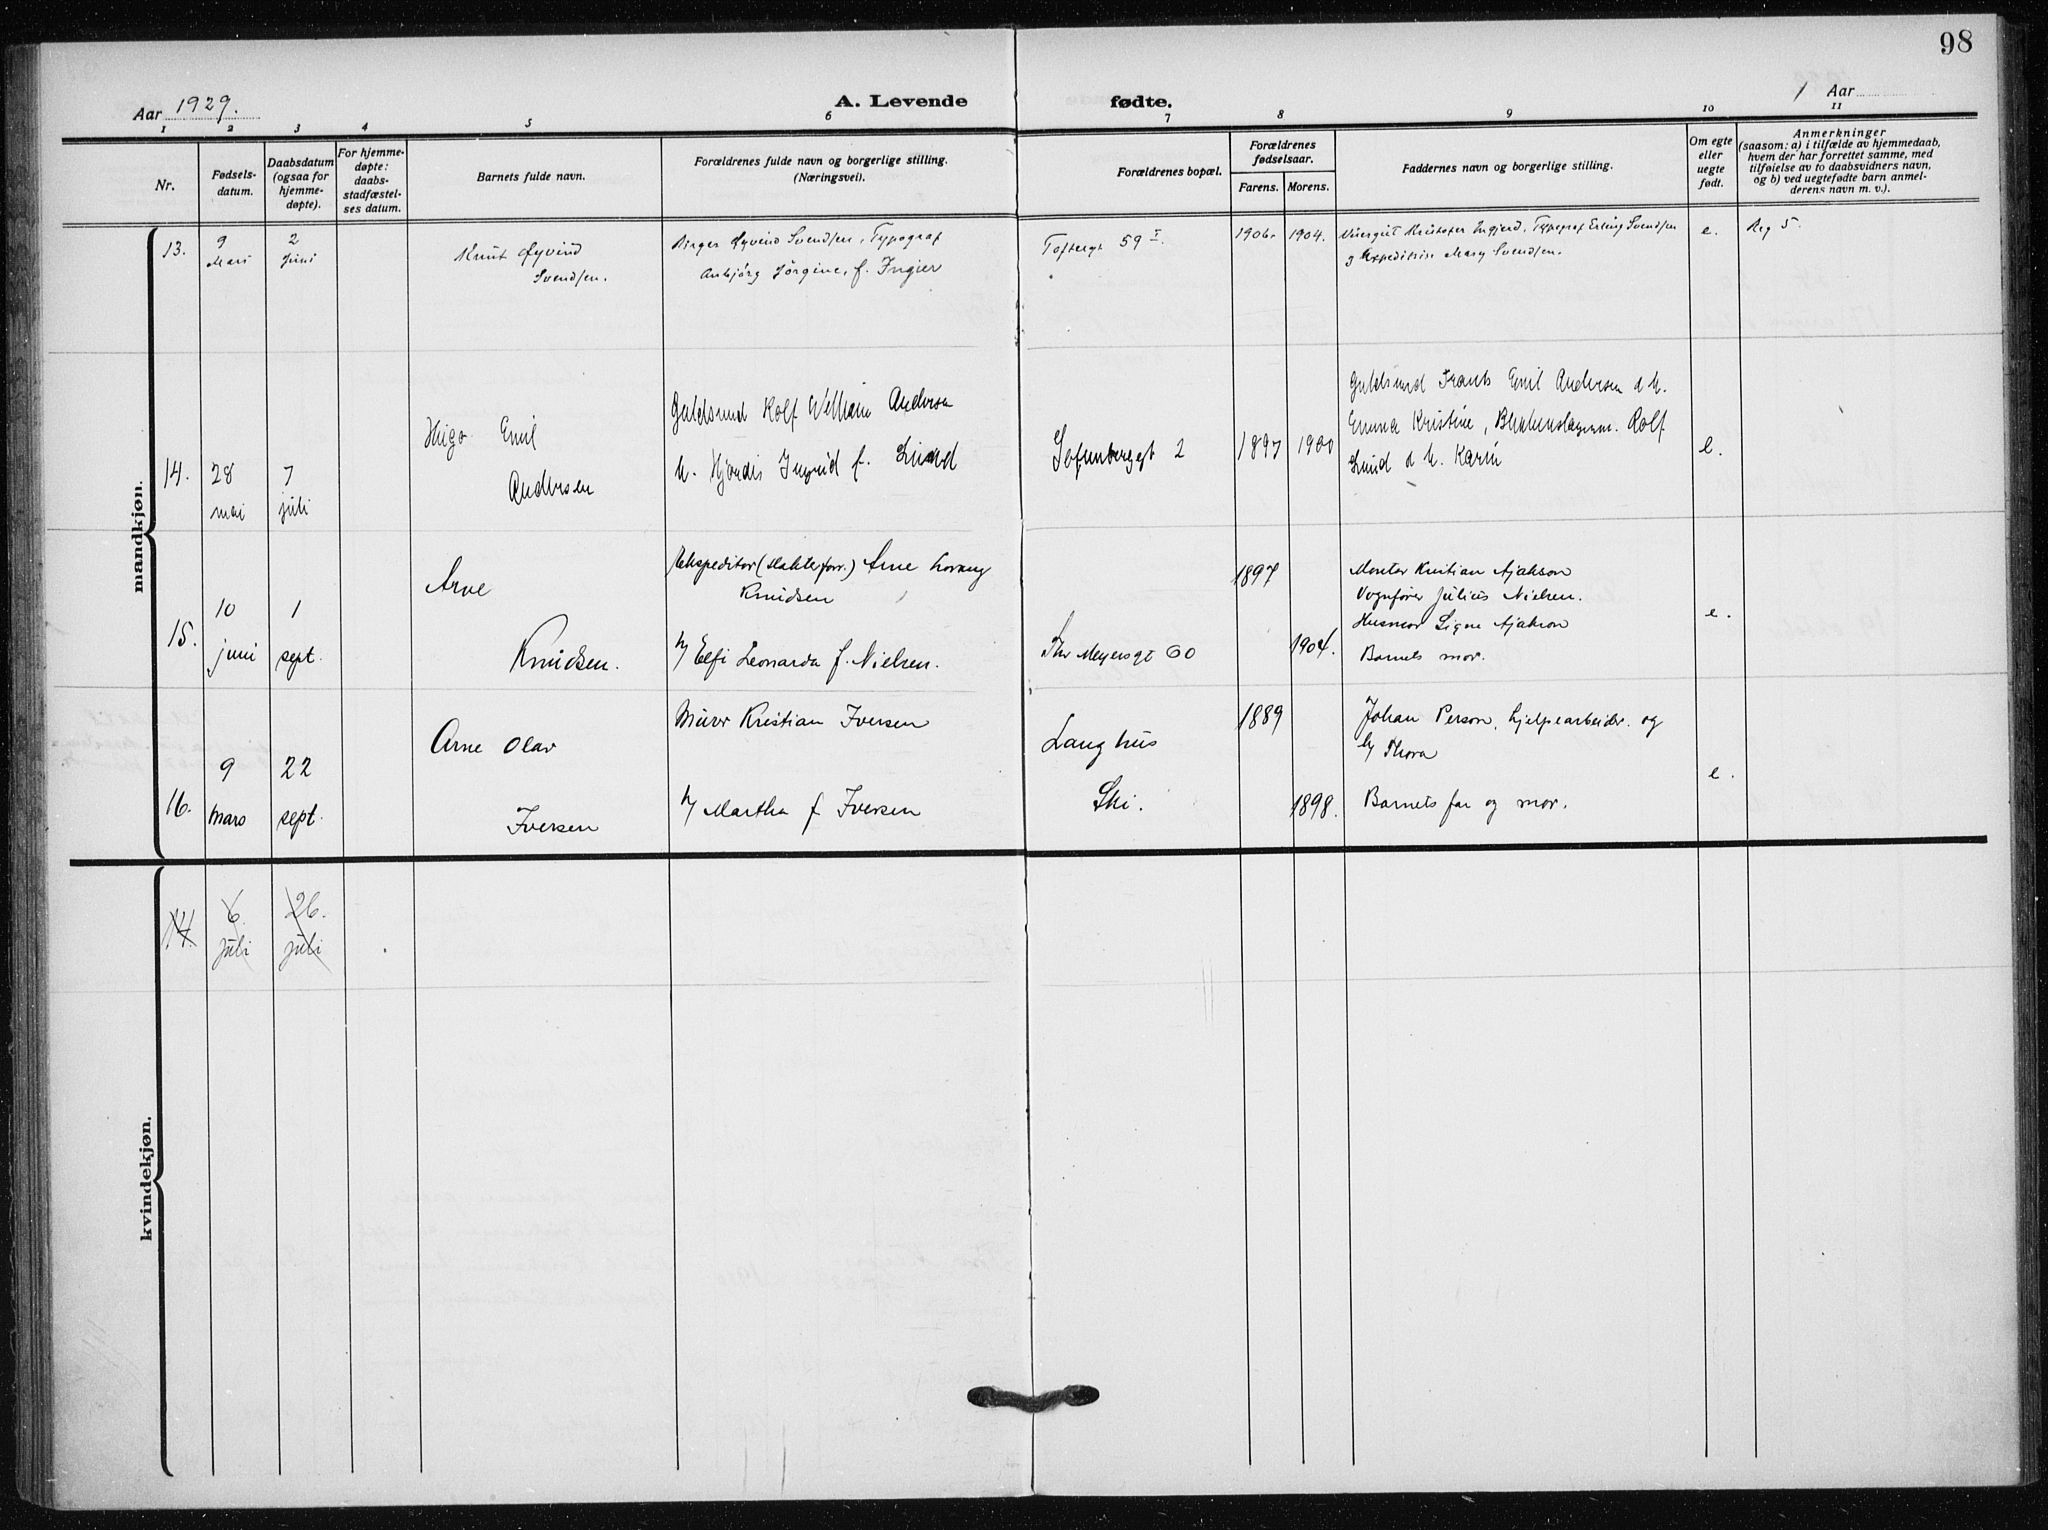 98
Aar 1929.
A. Levende fødte.
1 Aar
1 2 3 4 5 6 7 8 9 10 11
Nr.
Fødsels-
datum.
Daabsdatum
(ogsaa for
hjemme-
døpte).
For hjemme-
døpte:
daabs-
stadfæstel-
ses datum.
Barnets fulde navn.
Forældrenes fulde navn og borgerlige stilling.
(Næringsvei).
Forældrenes bopæl.
Forældrenes
fødselsaar.
Farens. Morens.
Faddernes navn og borgerlige stilling.
Om egte
eller
uegte
født.
Anmerkninger
(saasom: a) i tilfælde av hjemmedaab,
hvem der har forrettet samme, med
tilføielse av to daabsvidners navn,
og b) ved uegtefødte barn anmel-
derens navn m. v.).
mandkjøn.
13.
9
Mars
2
Juni
Knut Øyvind
Svendsen.
Birger Øyvind Svendsen, Typograf
Anbjørg Jørgine, f. Ingier
Toftesgt 59 I
1906. 1904.
Kristofer Ingierd, Typograf Erling Svendsen
Mary Svendsen.
e.
Reg 5
14.
28
mai
7
juli
Hugo Emil
Andersen
Guldsmed Rolf William Andersen
h. Hjørdis Ingrid f. Lund
Sofienberggt 2
1897 1900
Guldsmed Frants Emil Andersen o h.
Emma Kristine, Blikkenslagerm. Rolf
Lund o h. Karin
e.
15.
10
juni
1
sept.
Arne
Knudsen.
Ekspeditør (slakterforr.) Arne Lorang
Knudsen
h/ Elfi Leonarda f. Nielsen.
Thv Meyersgt 60
1897
1904.
Montør Kristian Ajakson
Vognfører Julius Nielsen.
Husmor Signe Ajakson
Barnets mor.
e.
16.
9
mars
22
sept.
Arne Olav
Iversen
Murer Kristian Iversen
h/ Martha f Iversen
Langhus
Ski.
1889
1898.
Johan Person, hjelpearbeider. og
h/ Thora
Barnets far og mor.
e.
kvindekjøn.
14.
6.
juli
26.
juli